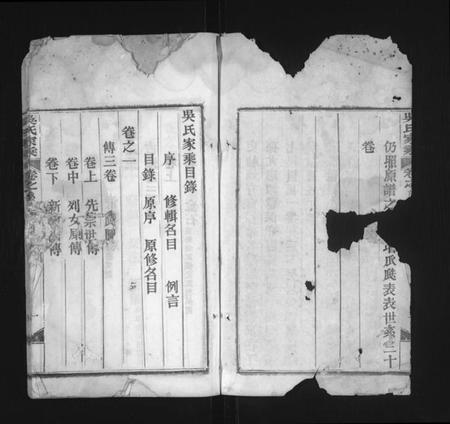 仍照原譜之
瓜瓞表表世系二十
卷
吳氏家乘目錄
序 修輯名目 例言
目錄 原序 原修名目
卷之一
傳三卷
卷上 先宗世傳
卷中 列女原傳
卷下 新
傳
吳氏家乘
卷之
吳氏家
卷之